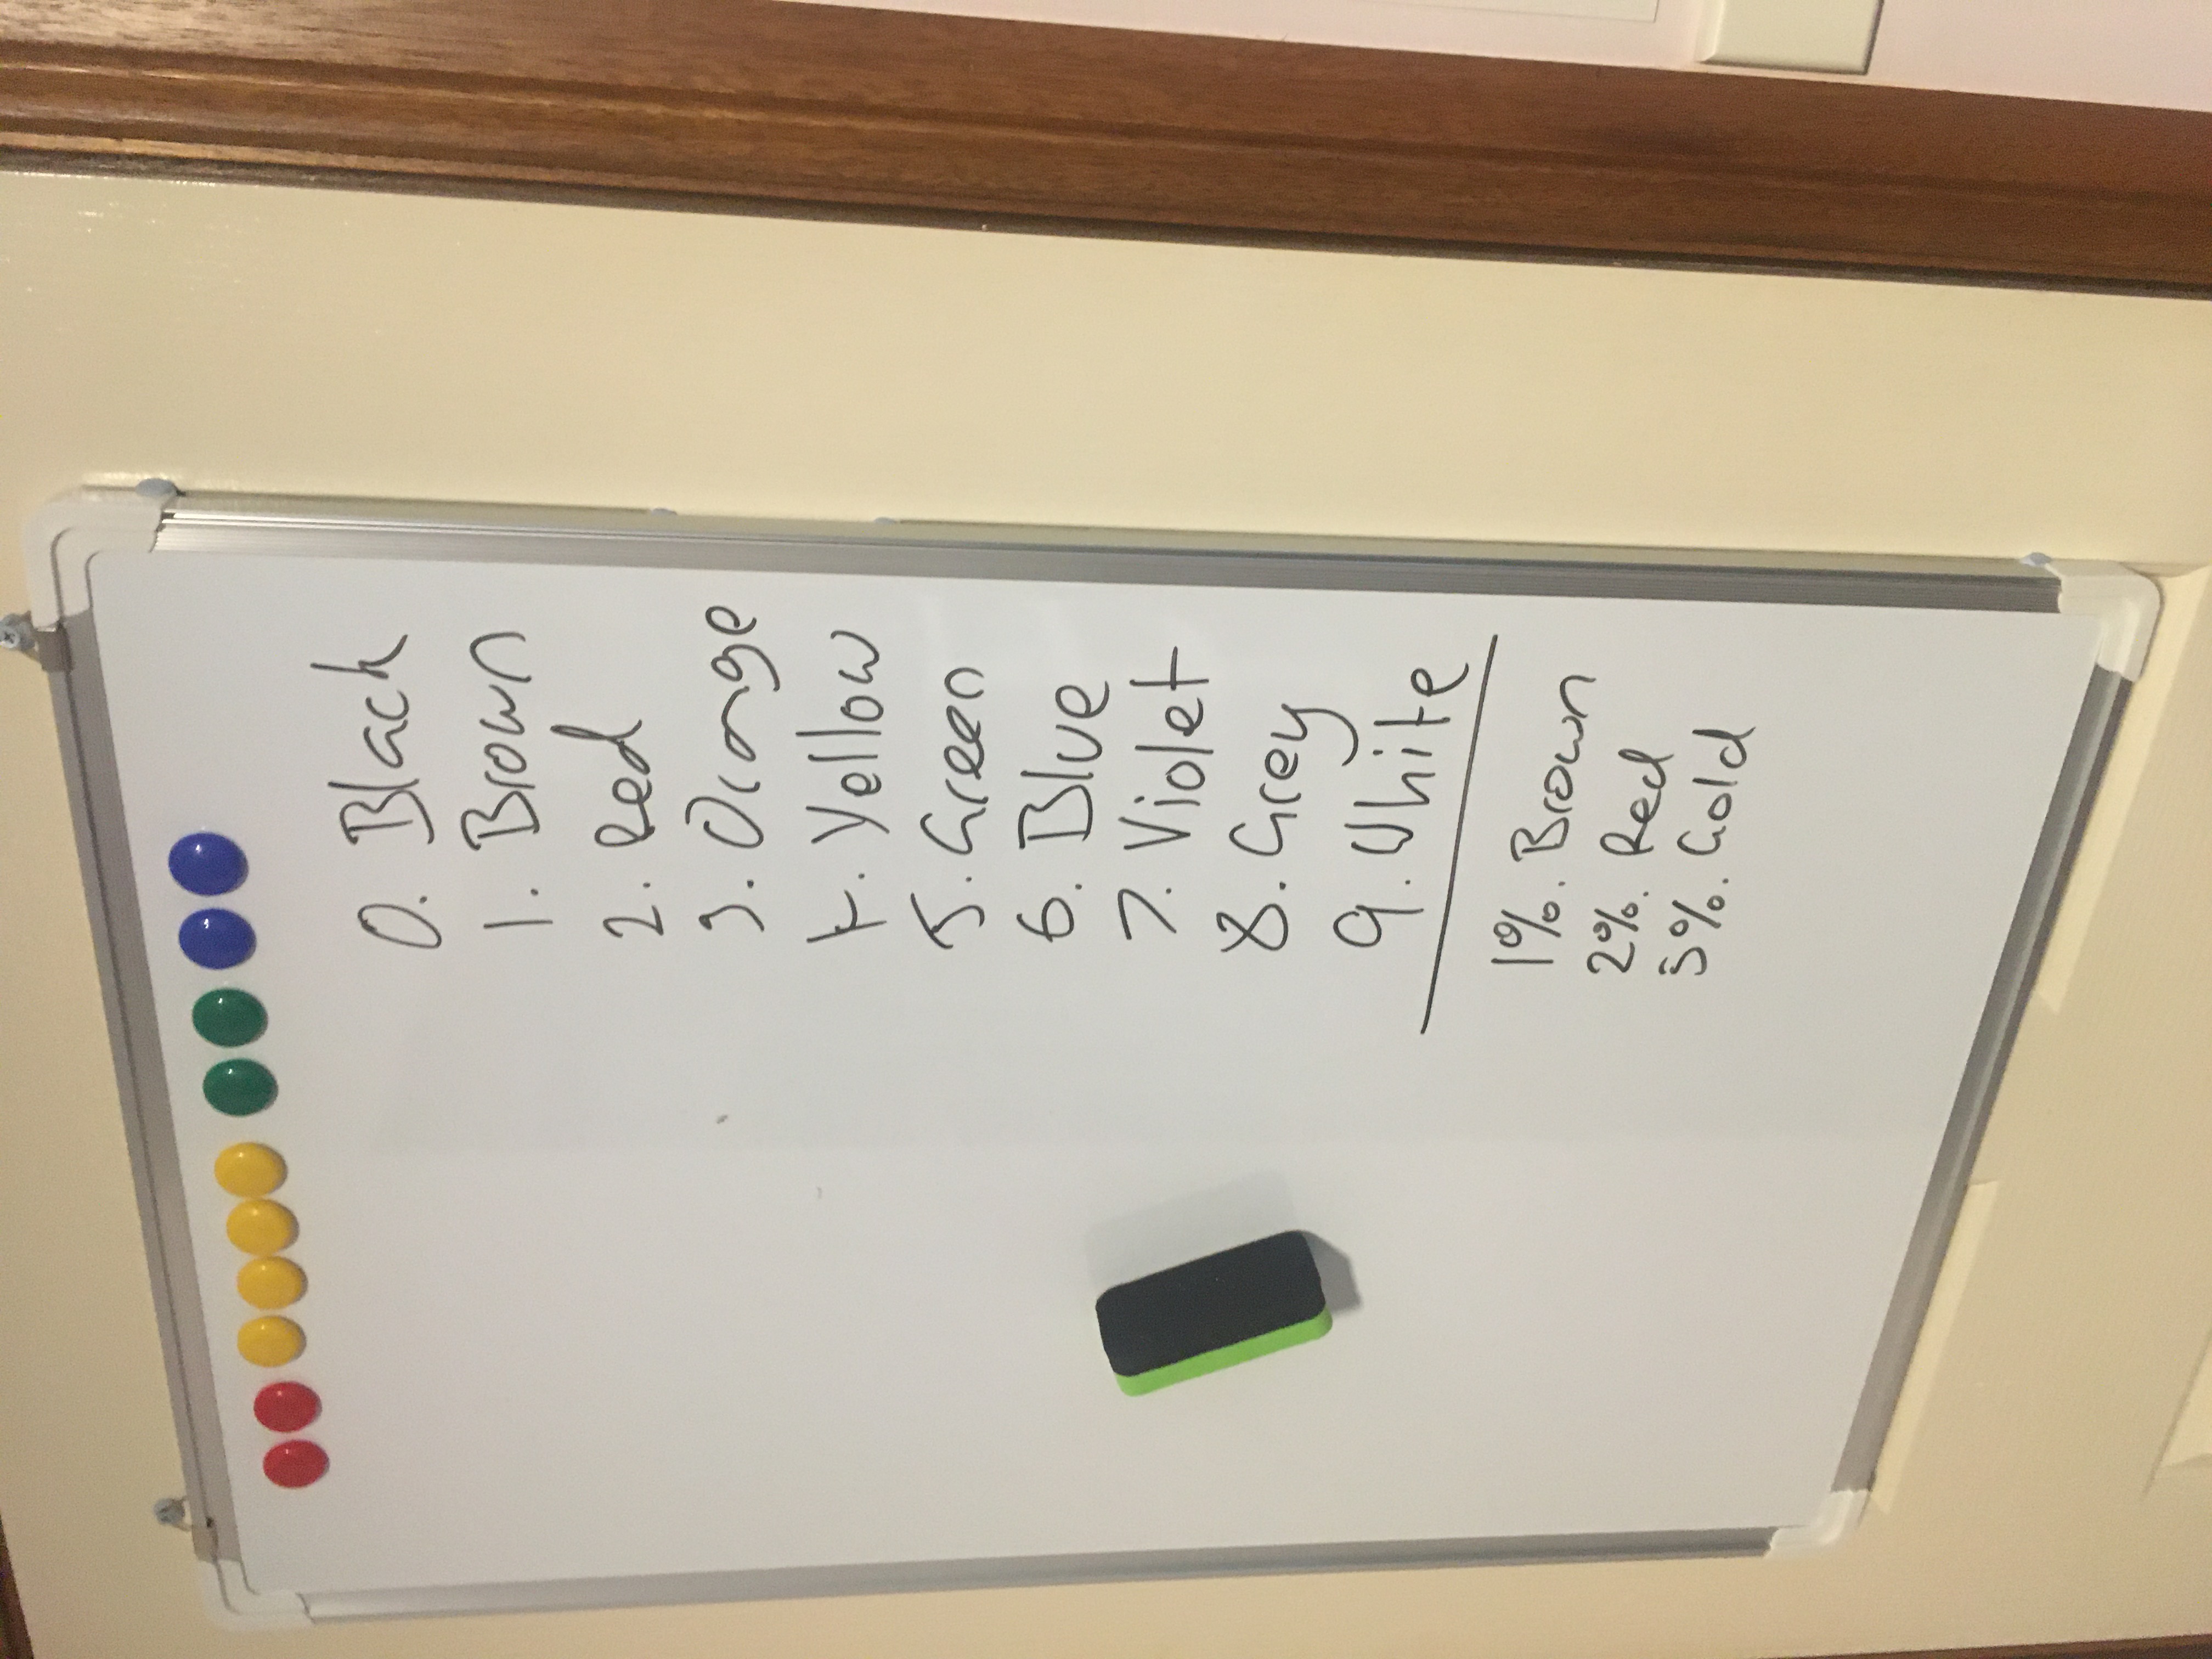 0. Black
1. Brown
2. Red
3. Orange
4. Yellow
5. Green
6. Blue
7. Violet
8. Grey
9. White
1%. Brown
2%. Red
5%. Gold